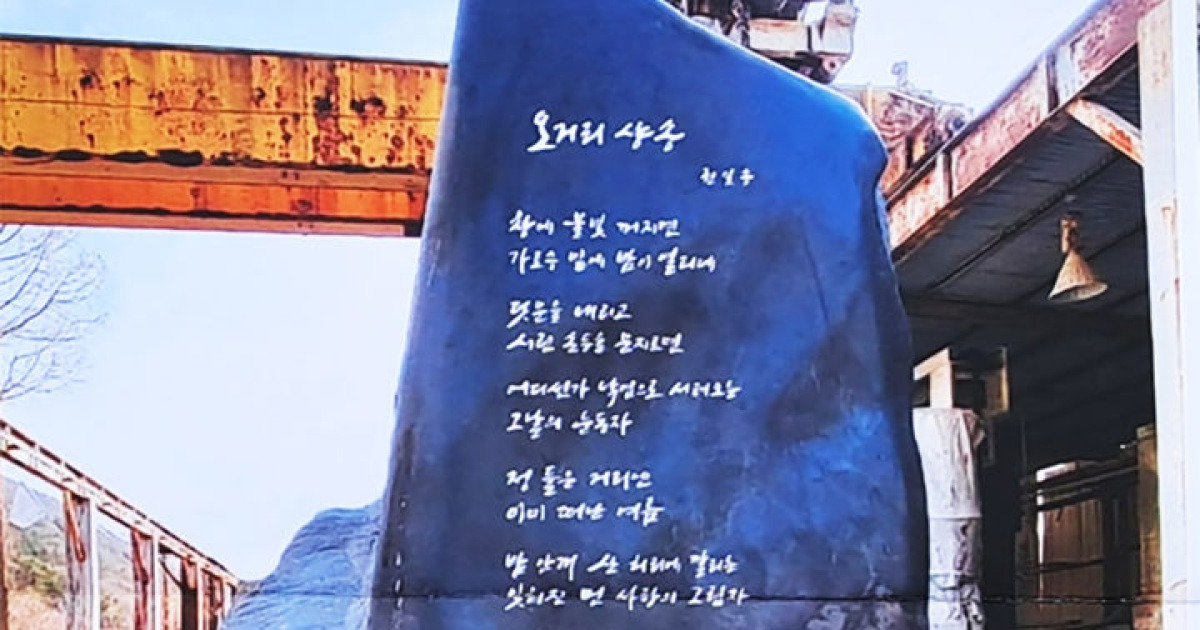 오거리 샹송
창에 불빛 꺼지면
가로수 잎에 밤이 열리네
덧문을 내리고
시린 손등을 문지르면
어디선가 낙엽으로 서려오는
그날의 눈동자
정 들은 거리엔
이미 떠난 여름
밤 안개 산 허리에 걸리는
잊혀진 먼 사랑의 그림자